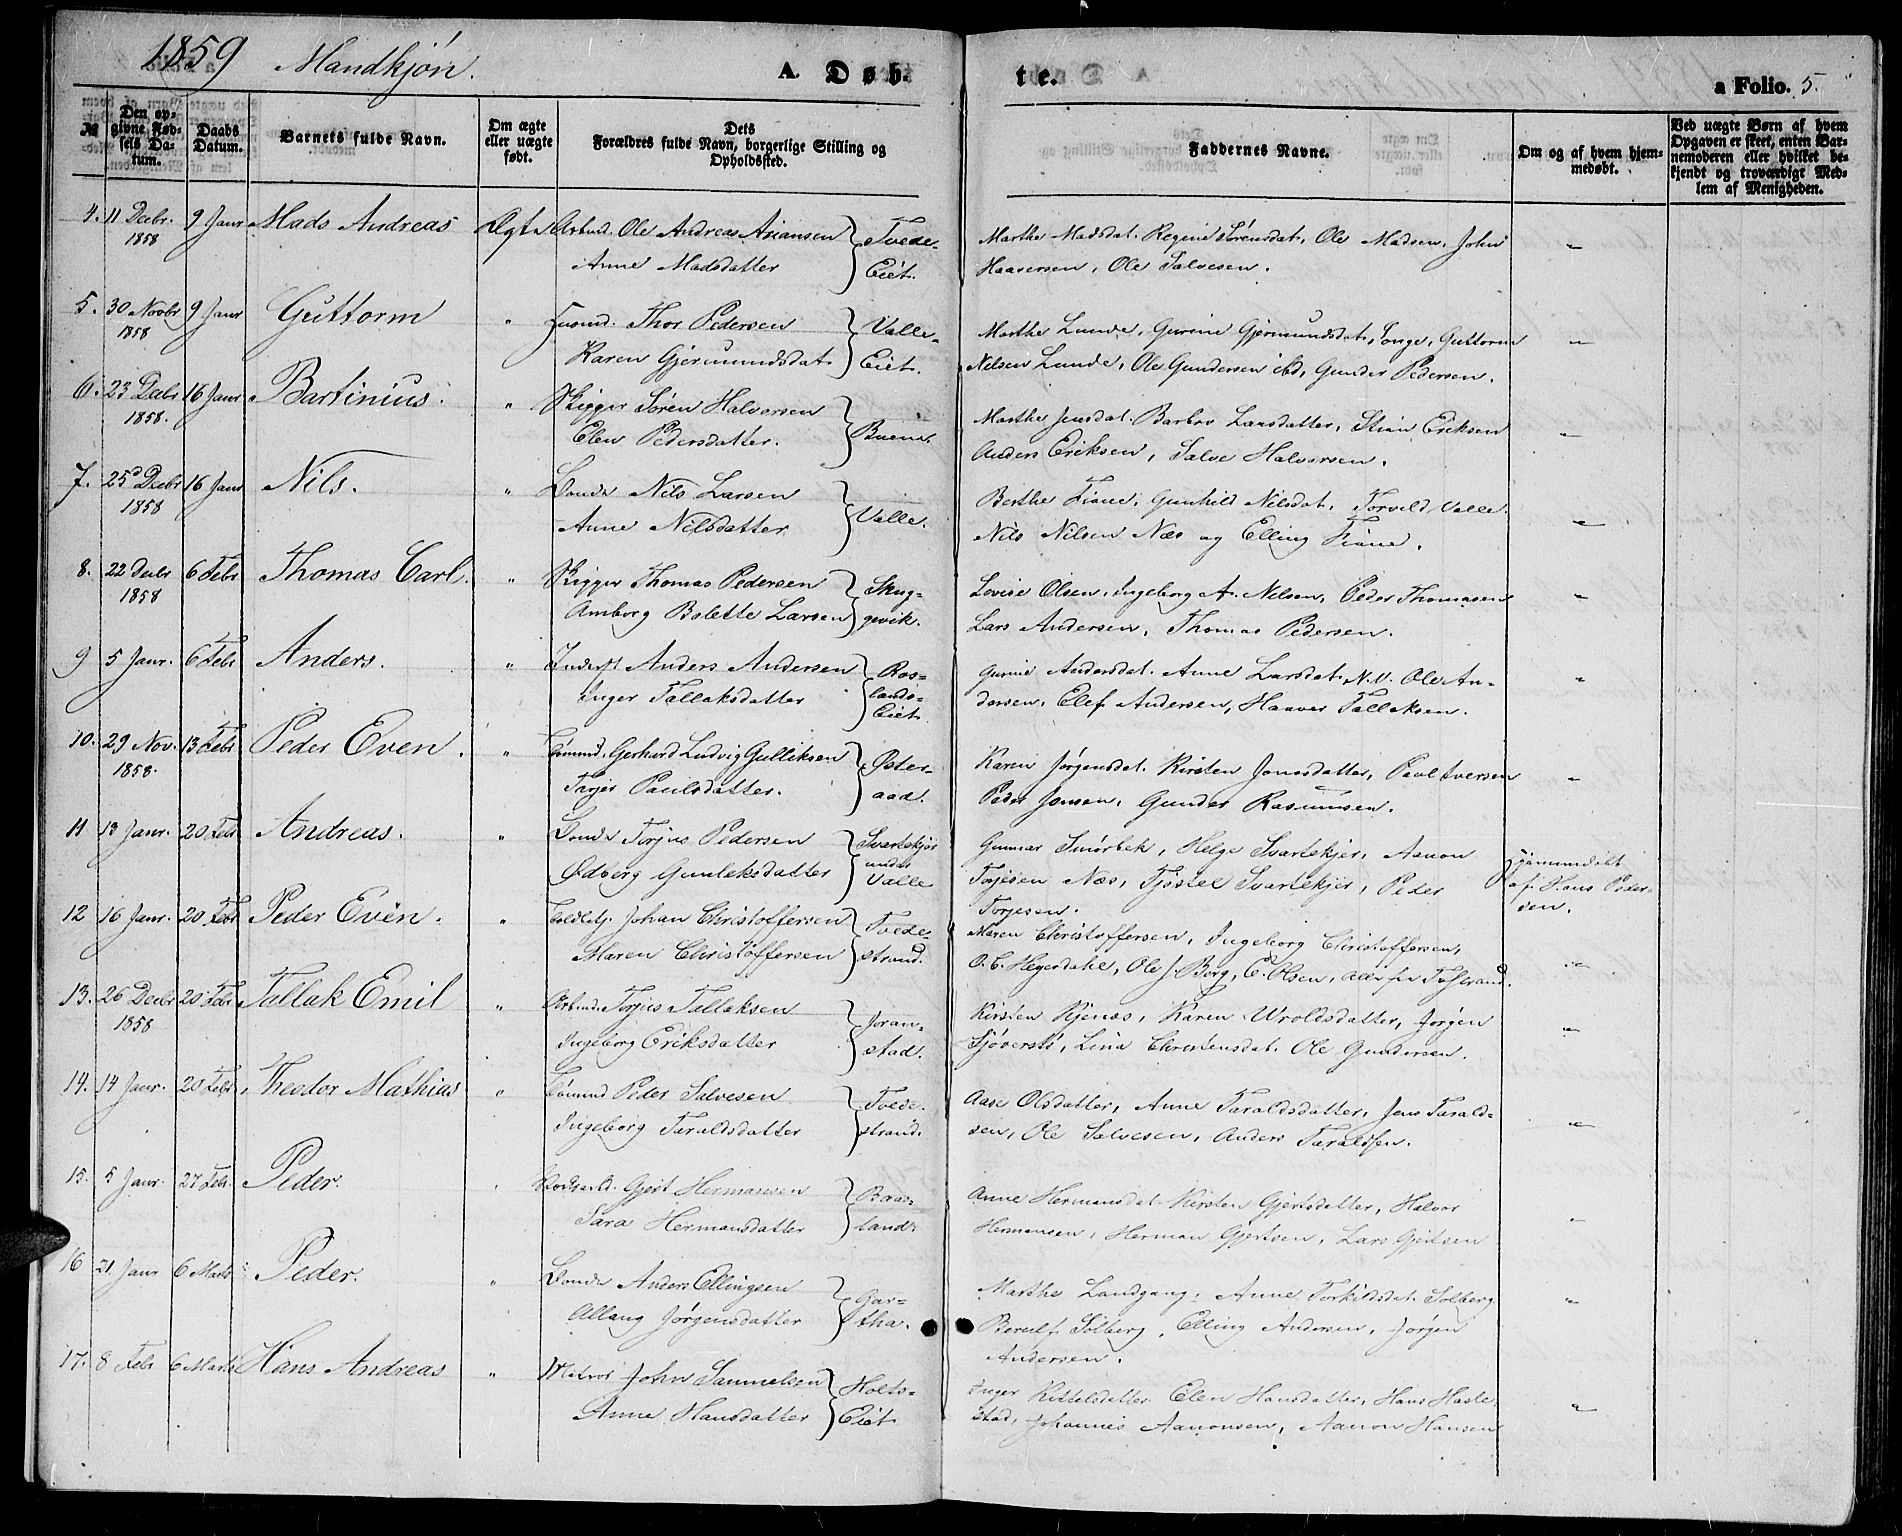 1859 Mandkjön. A. Døb- te. a Folio. 5.
№ Den opgivne Fødsels Datum. Daabs Datum. Barnets fulde Navn. Om ægte eller uægte født. Dets Forældres fulde Navn, borgerlige Stilling og Opholdssted. Faddernes Navne. Om og af hvem hjemmedøbt. Ved uægte Børn af hvem Opgaven er skeet, enten Barnemoderen eller hvilket bekjendt og troværdigt Medlem af Menigheden.
4. 11 Decbr. 9 Janr Mads Andreas Ægte Arbmd. Ole Andreas Asiansen Tvede- Marthe Madsdat. Regine Sörensdat, Ole Madsen, John
1858 Anne Madsdatter Eiet. Haaversen, Ole Salvesen. "
5. 30 Novbr 9 Janr Guttorm " Husmd. Thor Pedersen Valle- Marthe Lunde, Gurine Gjermundsdat, Songe, Guttorm
1858 Karen Gjermundsdat Eiet. Nilsen Lunde, Ole Gundersen ibd, Gunder Pedersen. "
6. 23 Decbr 16 Janr Bartinius. " Skipper Sören Halvorsen Buene. Marthe Jensdat. Barbro Larsdatter, Stian Eriksen
1858. Elen Pedersdatter. Anders Eriksen, Salve Halvorsen. "
7. 25 Decbr 16 Janr Nils. " Bonde Nils Larsen Valle. Berthe Fiane, Gunhild Nilsdat. Torvild Valle
1858 Anne Nilsdatter Nils Nilsen Næs og Elling Fiane. "
8. 22 Decbr 6 Febr Thomas Carl. " Skipper Thomas Pedersen Skug- Lovise Olsen, Ingeborg A. Nilsen, Peder Thomasen
1858 Amborg Bolette Larsen gevik. Lars Andersen, Thomas Pedersen. "
9 5 Janr. 6 Febr Anders. " Inderst Anders Andersen Ros- Gurine Andersdat. Anne Larsdat. N.N. Ole An-
Inger Tallaksdatter lands- Eiet. dersen, Elef Andersen, Haaver Tallaksen. "
10. 29 Nov. 13 Febr Peder Even. " Sömd. Gerhard Ludvig Gulliksen Öster- Karen Jörgensdat. Kirsten Jonsdatter, Paul Iversen
1858. Tarjer Paulsdatter. aad. Peder Jonsen, Gunder Rasmusen. "
11 13 Janr. 20 Febr Andreas. " Bonde Torjus Pedersen Svartekjær Gunnar Smörbek, Helge Svartekjer, Aanon Hjemmedöbt
Ödberg Gunleksdatter under Valle Torjesen Næs, Tjöstel Svartekjer, Peder af Hans Peder-
Torjesen. sen.
12 16 Janr. 20 Febr Peder Even. " Johan Christoffersen Tvede- Maren Christoffersen, Ingeborg Christoffersen,
Maren Christoffersen strand. O.C. Hegerdahl, Ole J. Borg, E. Olsen, "
13. 26 Decbr 20 Febr Tallak Emil " Arbmd. Torjus Tallaksen Joran- Kirsten Kjenæs, Karen Wroldsdatter, Jörgen
1858 Ingeborg Eriksdatter stad. Sjöversti, Lina Christensdat. Ole Gundersen. "
14. 14 Janr. 20 Febr. Theodor Mathias " Sömnd Peder Salvesen Tvede- Aase Olsdatter, Anne Taraldsdatter, Jens Tarald-
Ingeborg Taraldsdatter strand. sen, Ole Salvesen, Anders Taraldsen. "
15. 5 Janr. 27 Febr. Peder. " Gjert Hermansen Baas- Anne Hermansdat Kirsten Gjertsdatter, Halvor
Sara Hermansdatter land. Hermansen, Herman Gjertsen, Lars Gjertsen "
16 21 Janr 6 Marts Peder. " Bonde Anders Ellingsen Gar- Marthe Landgang, Anne Torkildsdat. Solberg
Allaug Jörgensdatter tha. Berulf Solberg, Elling Andersen, Jörgen "
Andersen.
17. 8 Febr 6 Marts Hans Andreas " Matros John Samuelsen Holts- Inger Kittelsdatter Elen Hansdatter, Hans Hasle-
Anne Hansdatter Eiet stad, Johannes Aanonsen, Aanon Hansen "